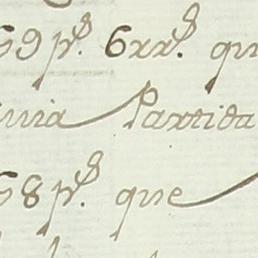 69 p.^s 6 rr.^s qu
uia Partida
68 p.^s que